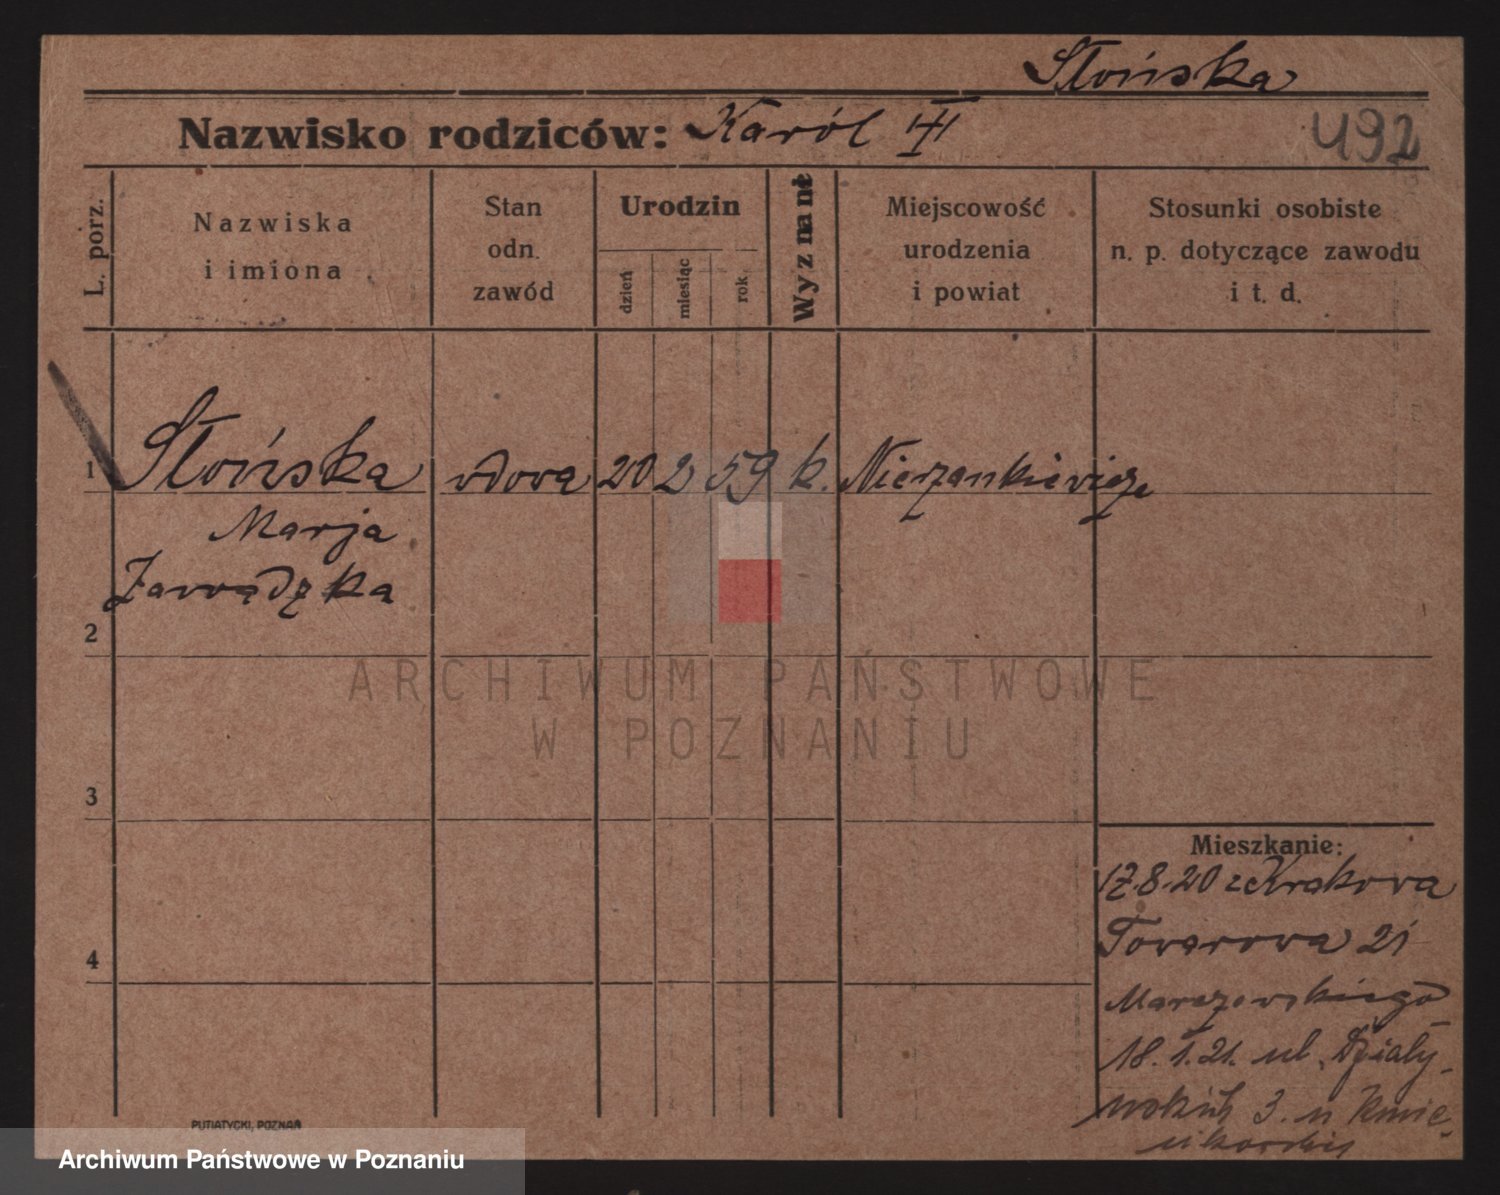 Słońska
Nazwisko rodziców: Karól III
492
L. porz.
Nazwiska
i imiona
Stan
odn.
zawód
Urodzin
dzień
miesiąc
rok
Wyznanie
Miejscowość
urodzenia
i powiat
Stosunki osobiste
n. p. dotyczące zawodu
i t. d.
1 Słońska wdowa 20 2 59 k. Nierzankiewicze
Marja
Zawadzka
2
ARCHIWUM PAŃSTWOWE
W POZNANIU
3
Mieszkanie:
17.8.20 z Krakowa
4
Towarowa 21
18.1.21. ul. Działy-
3. u
PUTIATYCKI, POZNAŃ
Archiwum Państwowe w Poznaniu